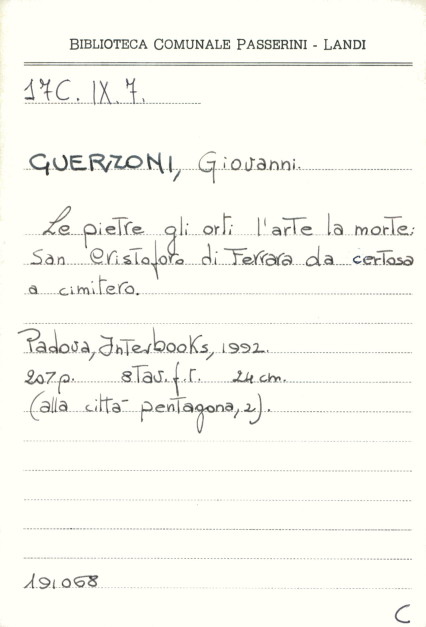 BIBLIOTECA COMUNALE PASSERINI - LANDI
17C. IX. 7.
GUERZONI, Giovanni.
Le pietre gli orti l'arte la morte:
San Cristoforo di Ferrara da certosa
a cimitero.
Padova, Interbooks, 1992.
207 p. 8 Tav. f.t. 24 cm.
(alla città pentagona, 2).
191068
C